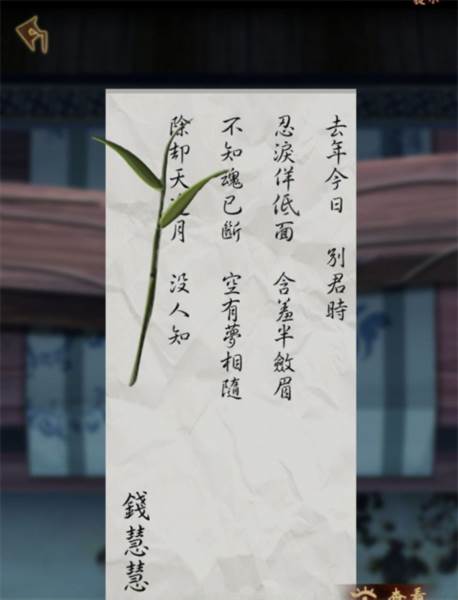 去年今日 別君時
忍淚佯低面 含羞半斂眉
不知魂已斷 空有夢相隨
除却天月 沒人知
錢慧慧